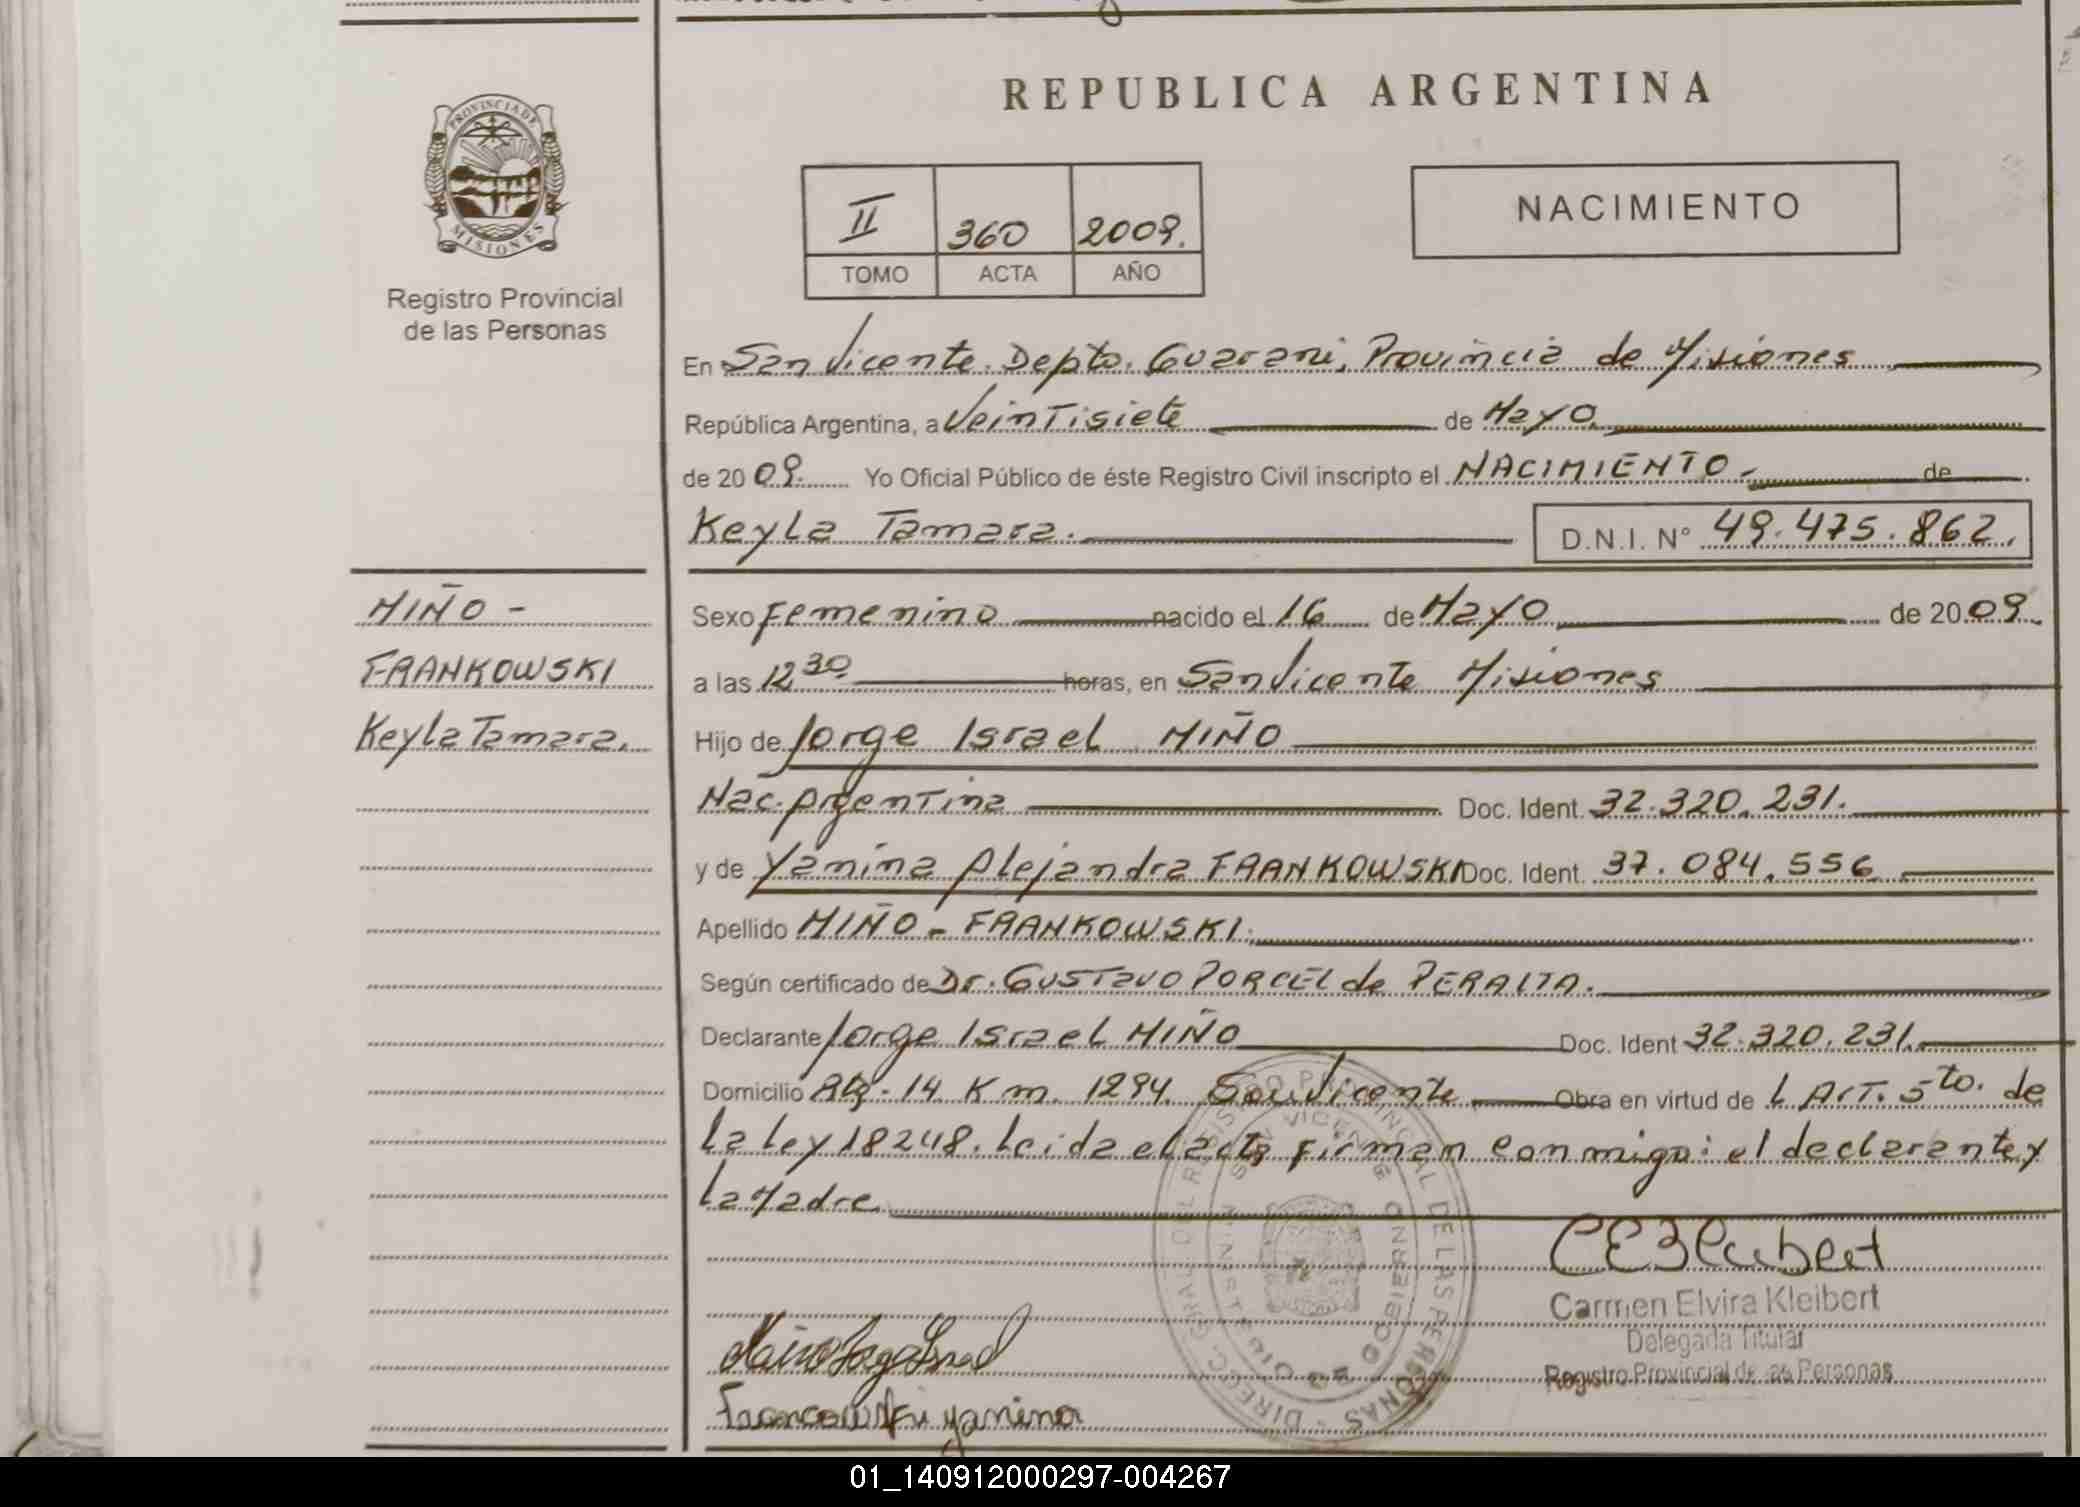 REPUBLICA ARGENTINA
PROVINCIA DE
MISIONES
Registro Provincial
de las Personas
II 360 2009.
TOMO ACTA AÑO
NACIMIENTO
En San Vicente. Depto. Guarani, Provincia de Misiones
República Argentina, a Veintisiete de Mayo
de 2009. Yo Oficial Público de éste Registro Civil inscripto el NACIMIENTO - de
Keyla Tamara. D.N.I. N° 49.475.862.
MIÑO -
FRANKOWSKI
Keyla Tamara.
Sexo Femenino nacido el 16 de Mayo de 2009.
a las 12 30 horas, en San Vicente Misiones
Hijo de Jorge Israel MIÑO
Nac. Argentina Doc. Ident. 32.320.231.
y de Yanina Alejandra FRANKOWSKI Doc. Ident. 37.084.556
Apellido MIÑO - FRANKOWSKI.
Según certificado de Dr. GUSTAVO PORCEL de PERALTA.
Declarante Jorge Israel MIÑO Doc. Ident 32.320.231.
Domicilio 14 Km. 1294 San Vicente Obra en virtud de L Art. 5to. de
La Ley 18248. Leida el acta firman conmigo: el declarante y
La Madre
CEKleibert
Carmen Elvira Kleibert
Delegada Titular
Registro Provincial de las Personas
Miño Jorge Israel
Francowski yanina
DIRECC. GRAL. DEL REGISTRO PROVINCIAL DE LAS PERSONAS
SAN VICENTE
MINISTERIO DE GOBIERNO
01_140912000297-004267